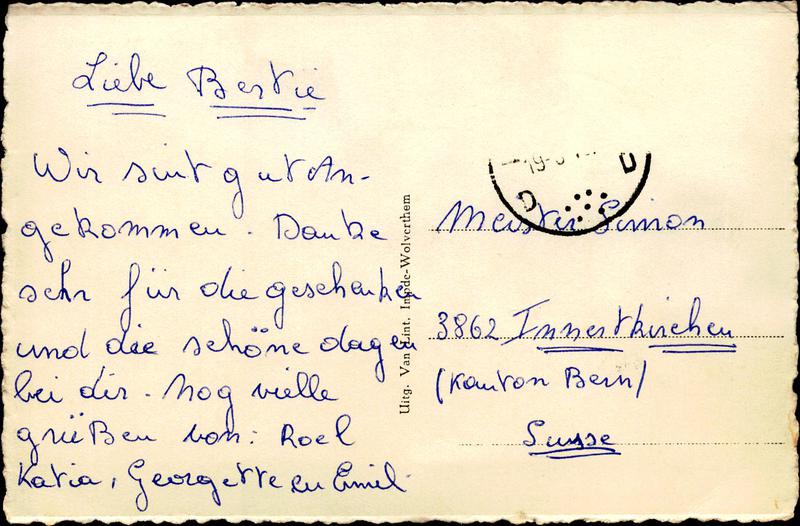 Liebe Bertie
Wir sint gut An-
gekommen. Danke
sehr für die geschenken
und die schöne dagen
bei dir. Nog vielle
grüßen von: Roel
Katia, Georgette en Emil.
Uitg. Van Lint, Impde-Wolverthem
D D
Meister Simon
3862 Innertkirchen
(Kanton Bern)
Suisse